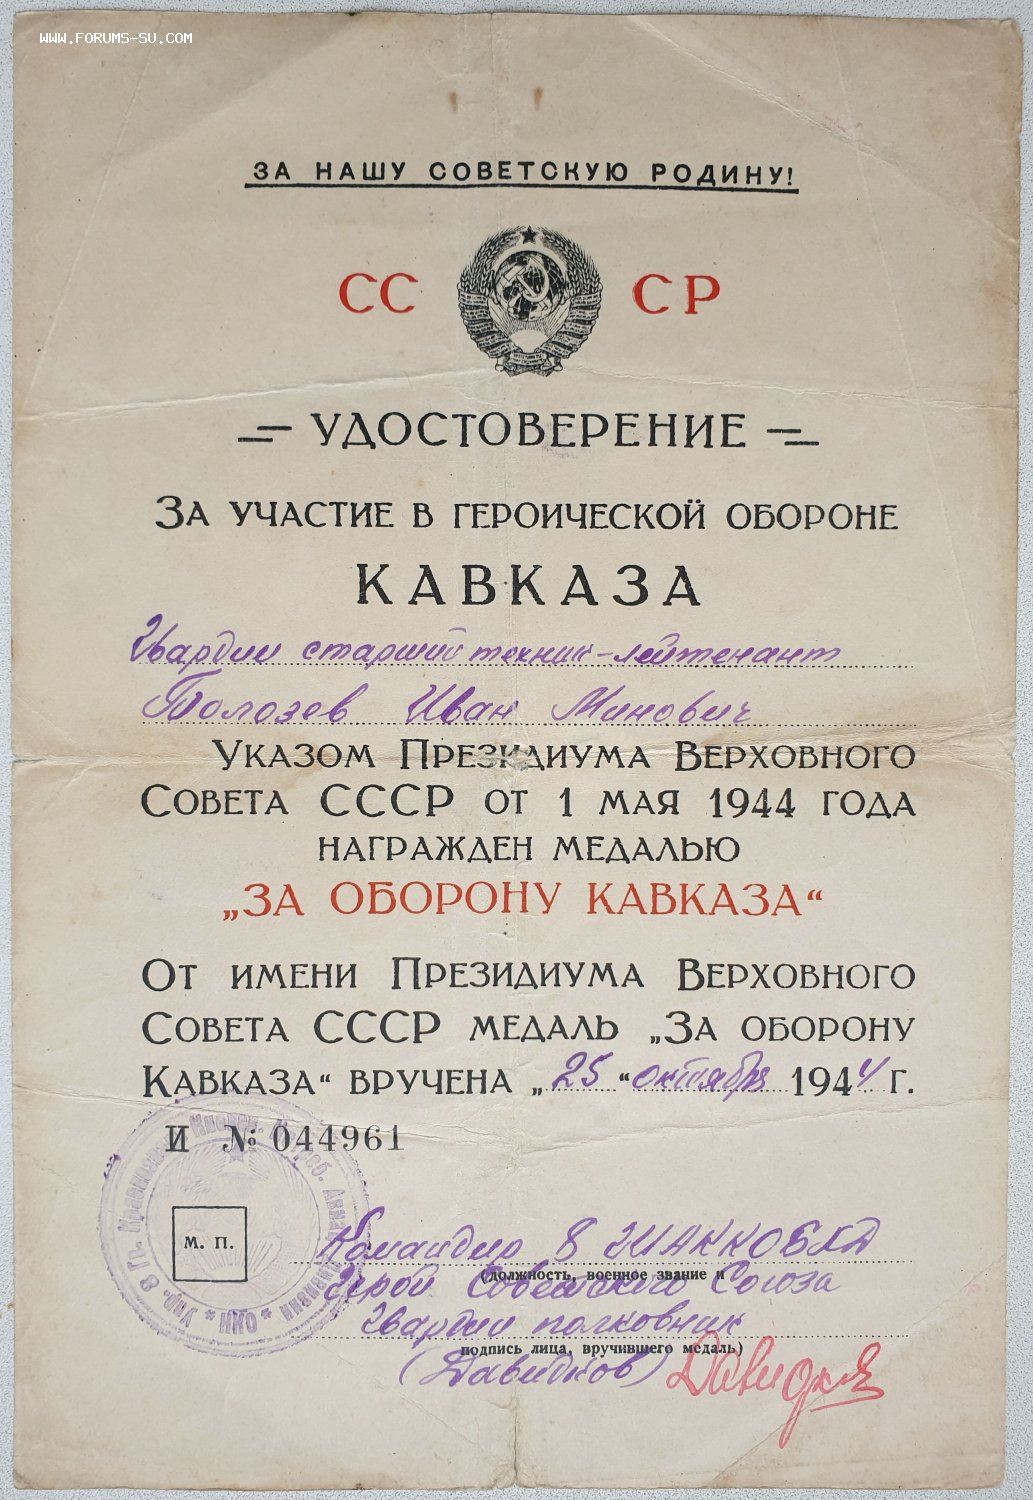 WWW.FORUMS-SU.COM
ЗА НАШУ СОВЕТСКУЮ РОДИНУ!
СС СР
УДОСТОВЕРЕНИЕ
ЗА УЧАСТИЕ В ГЕРОИЧЕСКОЙ ОБОРОНЕ
КАВКАЗА
Гвардии старший техник-лейтенант
Полозев Иван Минович
УКАЗОМ ПРЕЗИДИУМА ВЕРХОВНОГО
СОВЕТА СССР ОТ 1 МАЯ 1944 ГОДА
НАГРАЖДЕН МЕДАЛЬЮ
„ЗА ОБОРОНУ КАВКАЗА“
ОТ ИМЕНИ ПРЕЗИДИУМА ВЕРХОВНОГО
СОВЕТА СССР МЕДАЛЬ „ЗА ОБОРОНУ
КАВКАЗА“ ВРУЧЕНА „25“ октября 1944 Г.
И № 044961
М. П.
Упр. 8 Гв. Авиа дивизии * НКО *
Командир 8 ГИАККОБХД
(должность, военное звание и
Герой Советского Союза
Гвардии полковник
подпись лица, вручившего медаль)
(Давидков) Давидков